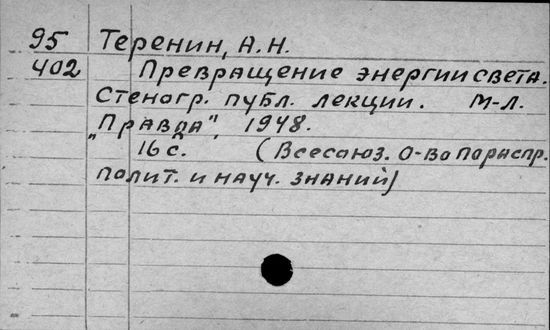 95 Теренин, А.Н.
402 Превращение энергии света.
Стеногр. публ. лекции. М-Л.
"Правда", 1948.
16 с. (Всесоюз. О-во по распр.
полит. и науч. знаний)